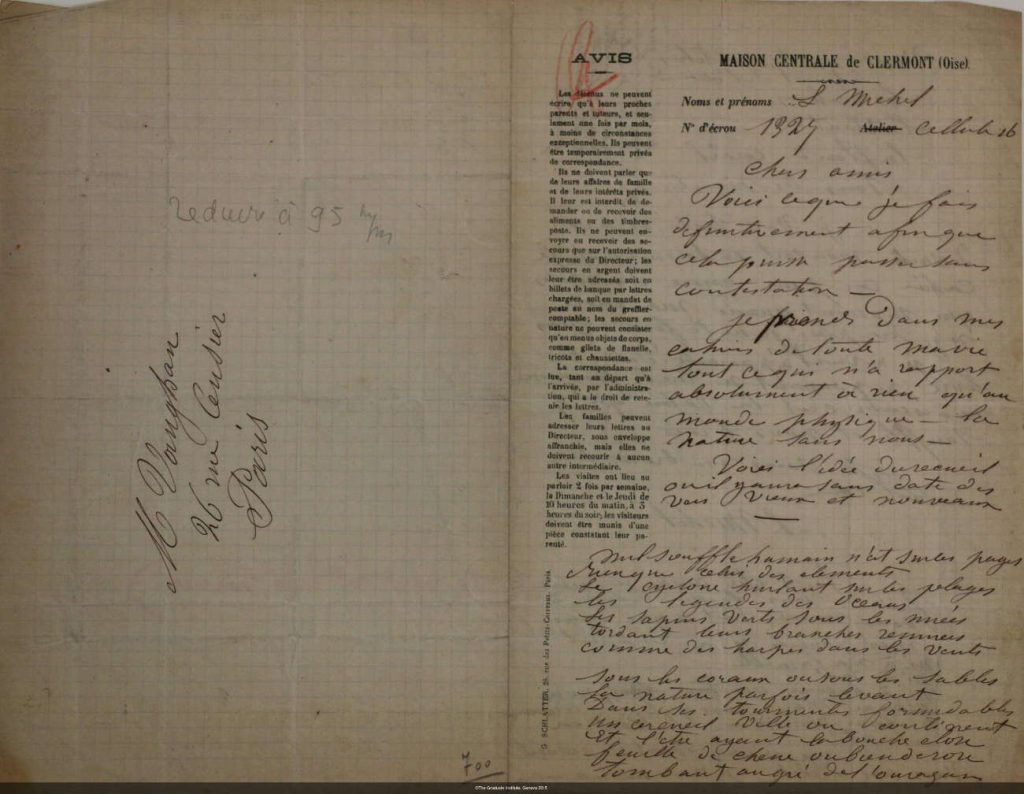 reduire à 95 m/m
M Vaughan
26 rue Censier
Paris
700
AVIS
Les détenus ne peuvent
écrire qu'à leurs proches
parents et tuteurs, et seu-
lement une fois par mois,
à moins de circonstances
exceptionnelles. Ils peuvent
être temporairement privés
de correspondance.
Ils ne doivent parler que
de leurs affaires de famille
et de leurs intérêts privés.
Il leur est interdit, de de-
mander ou de recevoir des
aliments ou des timbres-
poste. Ils ne peuvent en-
voyer ou recevoir des se-
cours que sur l'autorisation
expresse du Directeur; les
secours en argent doivent
leur être adressés soit en
billets de banque par lettres
chargées, soit en mandat de
poste au nom du greffier-
comptable; les secours en
nature ne peuvent consister
qu'en menus objets de corps,
comme gilets de flanelle,
tricots et chaussettes.
La correspondance est
lue, tant au départ qu'à
l'arrivée, par l'administra-
tion, qui a le droit de rete-
nir les lettres.
Les familles peuvent
adresser leurs lettres au
Directeur, sous enveloppe
affranchie, mais elles ne
doivent recourir à aucun
autre intermédiaire.
Les visites ont lieu au
parloir 2 fois par semaine,
le Dimanche et le Jeudi de
10 heures du matin, à 5
heures du soir; les visiteurs
doivent être munis d'une
pièce constatant leur pa-
renté.
G. SCHLATTER, 25, rue des Petits-Carreaux, Paris
MAISON CENTRALE de CLERMONT (Oise).
Noms et prénoms L Michel
N° d'écrou 1327 Atelier cellule 16
chers amis
Voici ce que je fais
definitivement afin que
cela puisse passer sans
contestation —
je prends dans mes
cahiers de toute ma vie
tout ce qui n'a rapport
absolument à rien qu'au
monde physique — la
nature sans nous —
Voici l'idée du recueil
où il y aura sans date des
vers vieux et nouveaux
nul souffle humain n'est sur les pages
rien que celui des elements
le cyclone hurlant sur les plages
les legendes des oceans
les sapins verts sous les nuées
tordant leurs branches remuées
comme des harpes dans les vents
sous les coraux ou sous les sables
la nature parfois levant
Dans ses tourmentes formidables
un cercueil ville ou continent
Et l'être ayant la bouche close
feuille de chene ou bien de rose
tombant au gré de l'ouragan
©The Graduate Institute, Geneva 2015